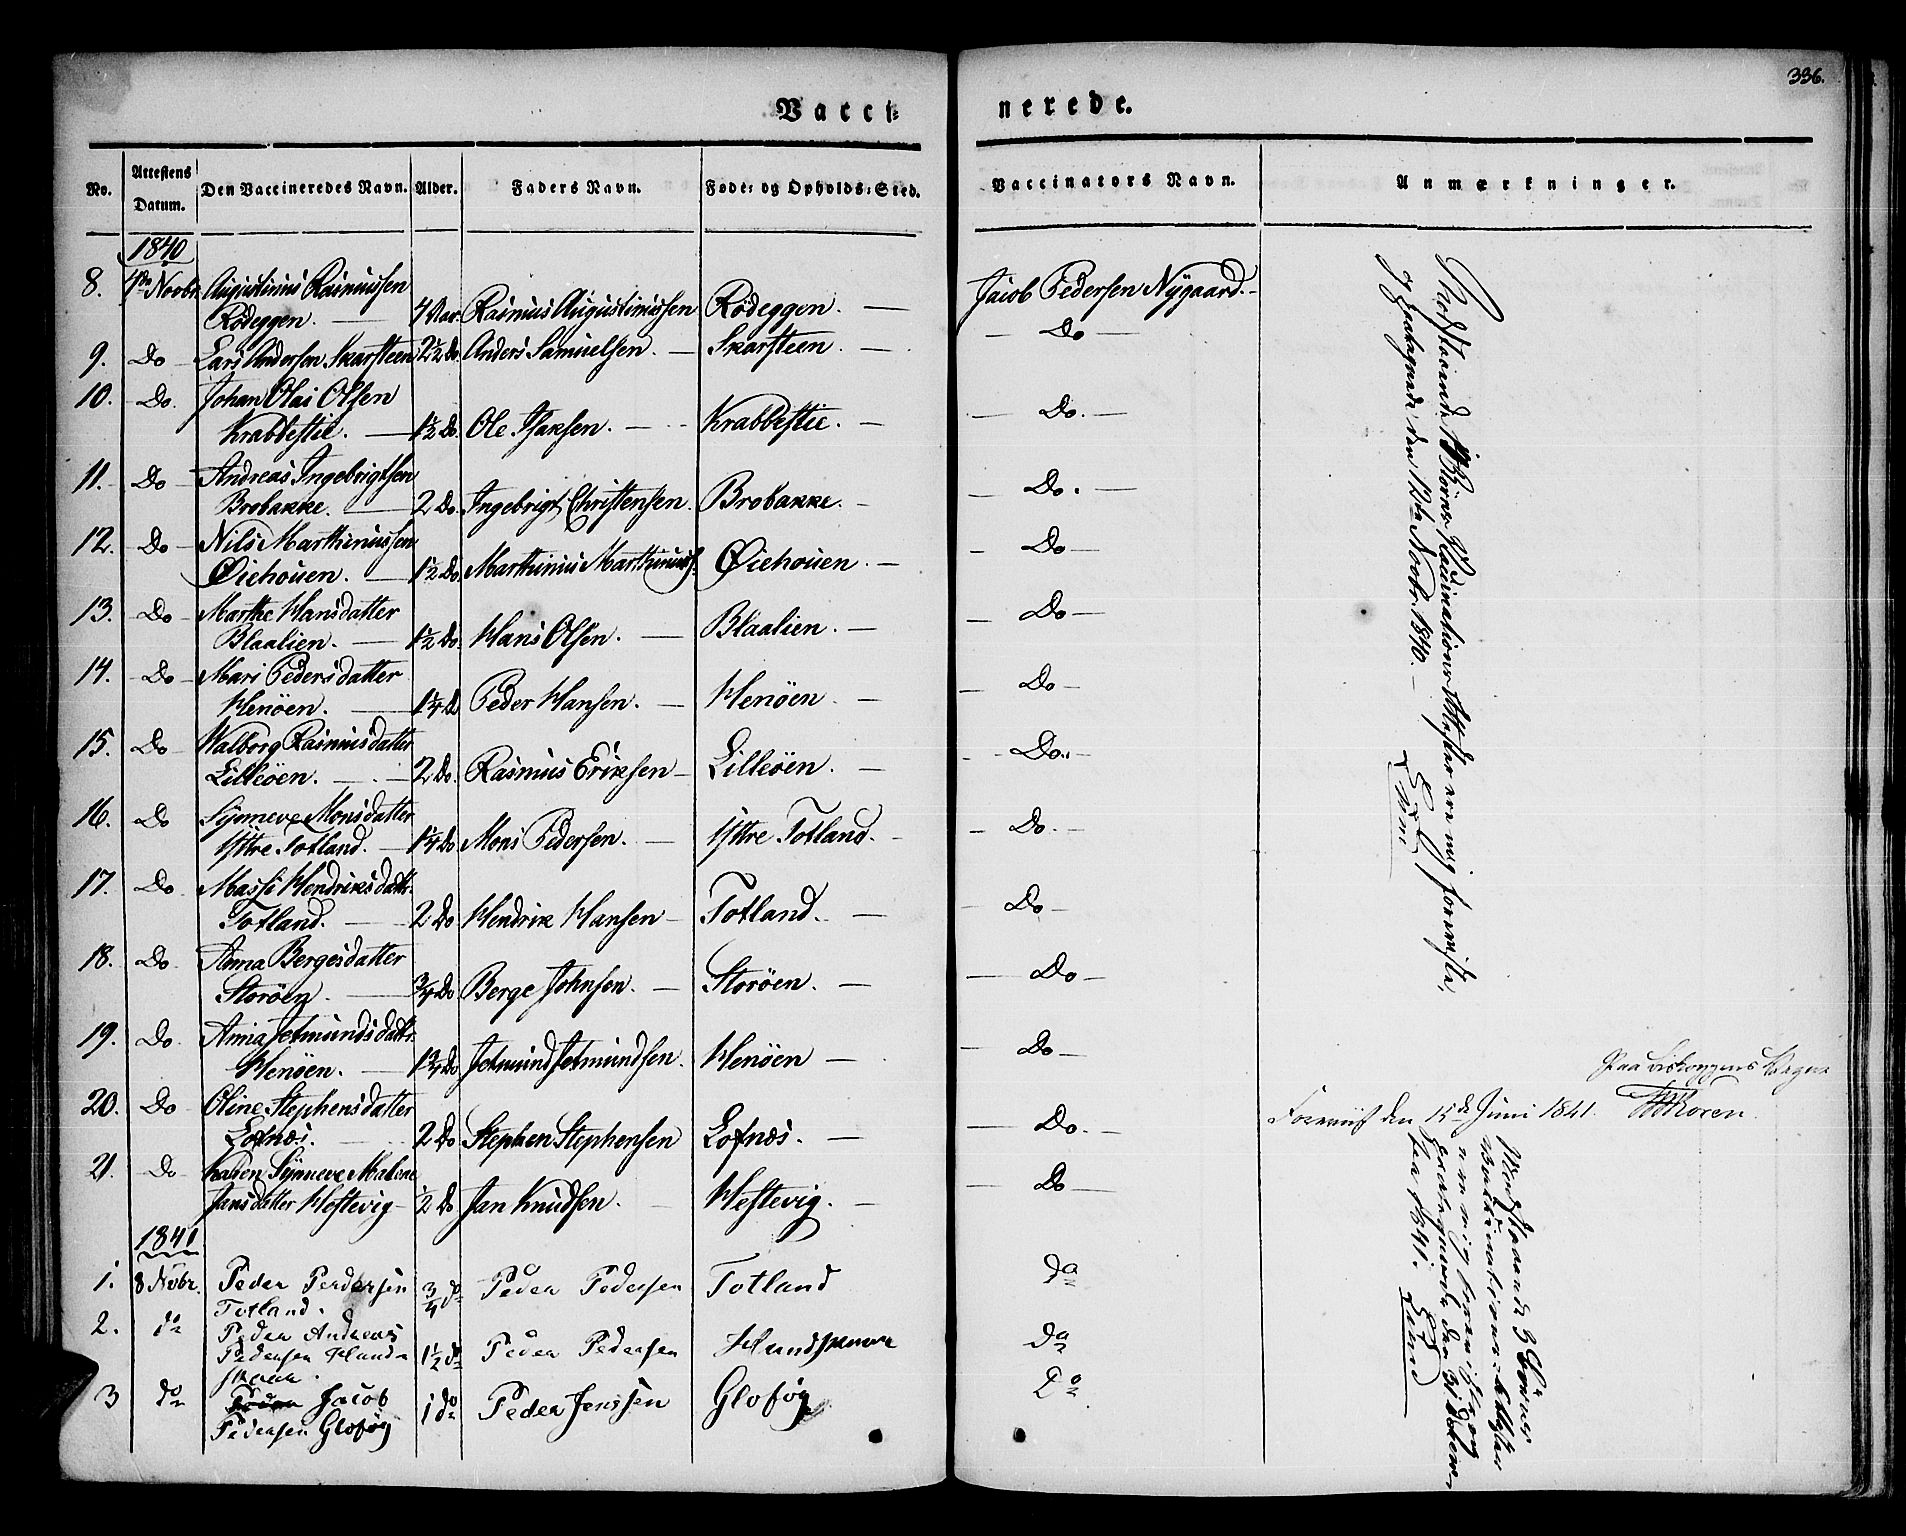 336.
Vacci=
nerede.
No.
Attestens Datum.
Den Vaccineredes Navn.
Alder.
Faders Navn.
Føde= og Opholds=Sted.
Vaccinators Navn.
Anmærkninger.
1840
8. 4de Novbr. Augustinus Rasmussen
Rödeggen. — 4 Aar. Rasmus Augustinussen Rödeggen. — Jacob Pedersen Nygaard. —
9. Do — Lars Andersen Skarsteen 2½ Do. Anders Samuelsen. — Skarsteen. — — Do —
10. Do. Johan Olai Olsen
Krabbestie. — 1½ Do. Ole Isaksen. — Krabbestie. — — Do. —
11. Do — Andreas Ingebrigtsen
Brobakke. — 2 Do. Ingebrigt Christensen. Brobakke. — — Do. —
12. Do — Nils Marthinussen
Øiehouen. — 1½ Do Marthinus Marthinuss: Øiehouen. — — Do —
13. Do — Marthe Hansdatter
Blaalien. — 1½ Do. Hans Olsen. — Blaalien. — — Do —
14. Do — Mari Pedersdatter
Henöen. — 1¼ Do Peder Hansen. — Henöen. — — Do —
15. Do — Walborg Rasmusdatter
Lilleöen. — 2 Do. Rasmus Eriksen — Lilleöen. — — Do. —
16. Do Synneve Monsdatter
Yttre Totland. — 1¼ Do Mons Pedersen. — Yttre Totland. — — Do. —
17. Do Massi Hendriksdattr.
Totland. — 2 Do Hendrik Hansen — Totland. — — Do —
18. Do. Anna Bergesdatter
Storöen. — ¾ Do Berge Johnsen. — Storöen. — — Do —
19. Do. Anna Jetmundsdattr.
Henöen. — 1¾ Do Jetmund Jetmundsen. Henöen — — Do —
20. Do Oline Stephensdatter
Lofnæs. — 2 Do Stephen Stephensen Lofnæs. — — Do. —
21. Do Karen Synneve Malene
Jansdatter Heftevig — ½ Do Jan Knudsen. — Heftevig. — — Do —
1841
1. 8 Novbr. Peder Perdersen
Totland. ¾ do Peder Pedersen Totland do
2. do Peder Andreas
Pedersen Hund
skaar. 1½ do Peder Pedersen Hundskaar do
3 do Jacob
Pedersen Glofög 1 do Peder Jenssen Glofög Do
Vaccinations Attester ere mig foreviste,
den 12te Novbr. 1840. —
Lund
Paa Biskoppens Vegne
Foreviist den 15de Juni 1841. WKoren.
3 Börns
Vaccinations=Attester
ere mig foreviste og
den 31 Decem-
ber 1841. Lund